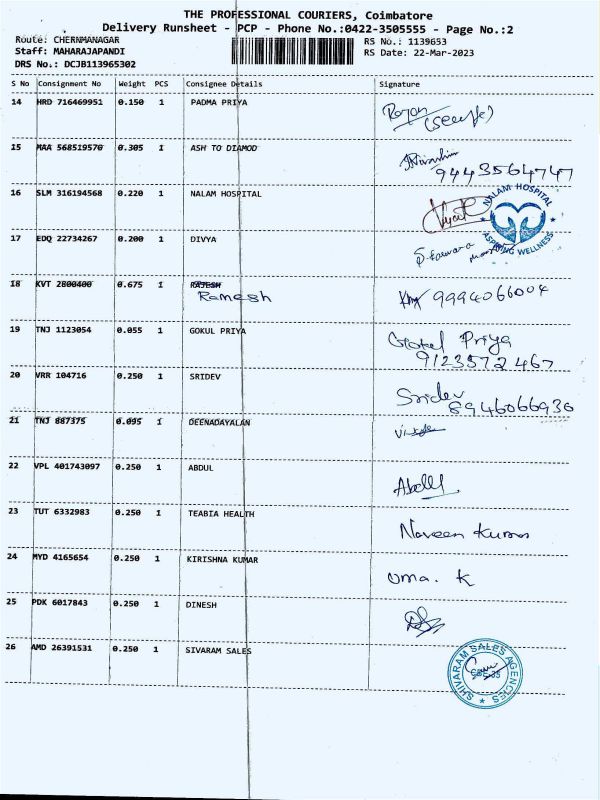 THE PROFESSIONAL COURIERS, Coimbatore
Delivery Runsheet - PCP - Phone No.:0422-3505555 - Page No.:2
Route: CHERNMANAGAR
Staff: MAHARAJAPANDI
DRS No.: DCJB113965302
RS No.: 1139653
RS Date: 22-Mar-2023
S No Consignment No Weight PCS Consignee Details Signature
14 HRD 716469951 0.150 1 PADMA PRIYA
15 MAA 568519570 0.305 1 ASH TO DIAMOD 9443564747
16 SLM 316194568 0.220 1 NALAM HOSPITAL
NALAM HOSPITAL
ASPIRING WELLNESS
17 EDQ 22734267 0.200 1 DIVYA
18 KVT 2800400 0.675 1 RAJESH
Ramesh 9994066004
19 TNJ 1123054 0.055 1 GOKUL PRIYA Gokul Priya
9123572467
20 VRR 104716 0.250 1 SRIDEV Sridev
8946066936
21 TNJ 887375 0.095 1 DEENADAYALAN
22 VPL 401743097 0.250 1 ABDUL
23 TUT 6332983 0.250 1 TEABIA HEALTH Naveen Kumar
24 MYD 4165654 0.250 1 KIRISHNA KUMAR Uma. K
25 PDK 6017843 0.250 1 DINESH
26 AMD 26391531 0.250 1 SIVARAM SALES
SHIVARAM SALES AGENCIES